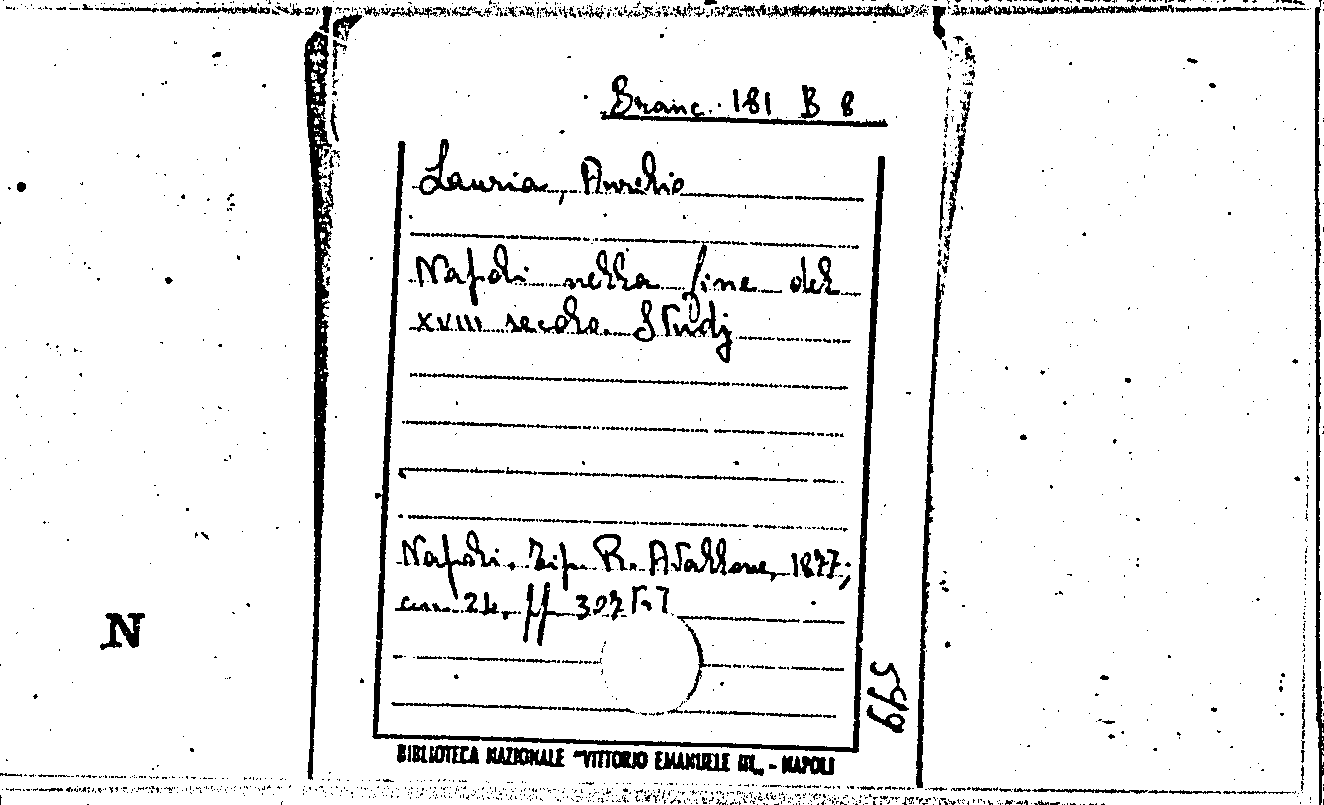 Branc. 181 B 8
Lauria, Aurelio
Napoli nella fine del
XVIII secolo. Studj
Napoli. Tip. R. Avallone, 1877;
cm. 24, pp. 307
599
N
BIBLIOTECA NAZIONALE "VITTORIO EMANUELE III„ - NAPOLI